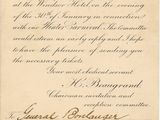 at the Windsor Hotel on the evening of
the 30th of January in connection
with our Winter Carnaval. The Committee
would esteem an early reply and I hope
to have the pleasure of sending you
the necessary tickets.
Your most obedient servant
H. Beaugrand
Chairman invitation and
reception committee.
To General Boulanger